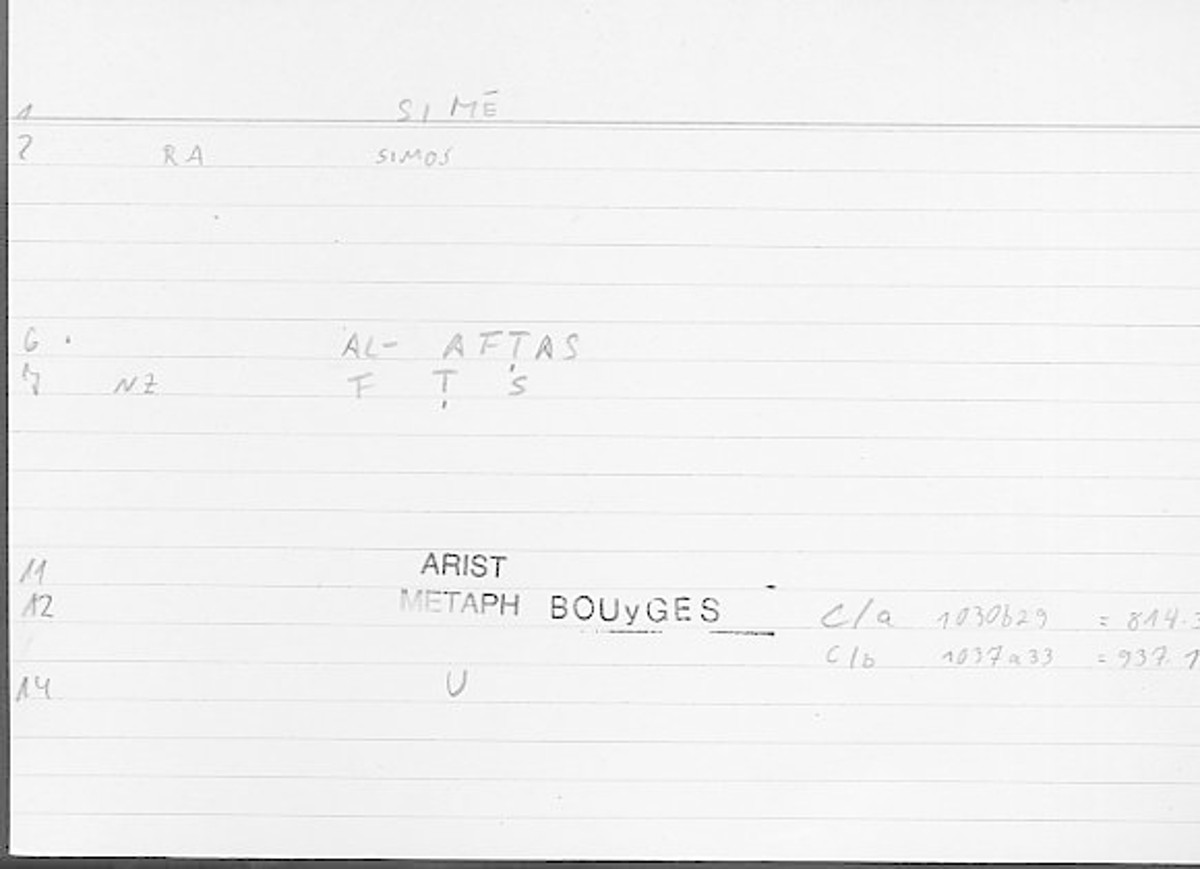 1 SIMĒ
2 RA SIMOS
6 . AL- AFṬAS
7 NZ F Ṭ S
11 ARIST
12 METAPH BOUyGES C/a 1030b29 = 814.3
C/b 1037a33 = 937.1
14 U